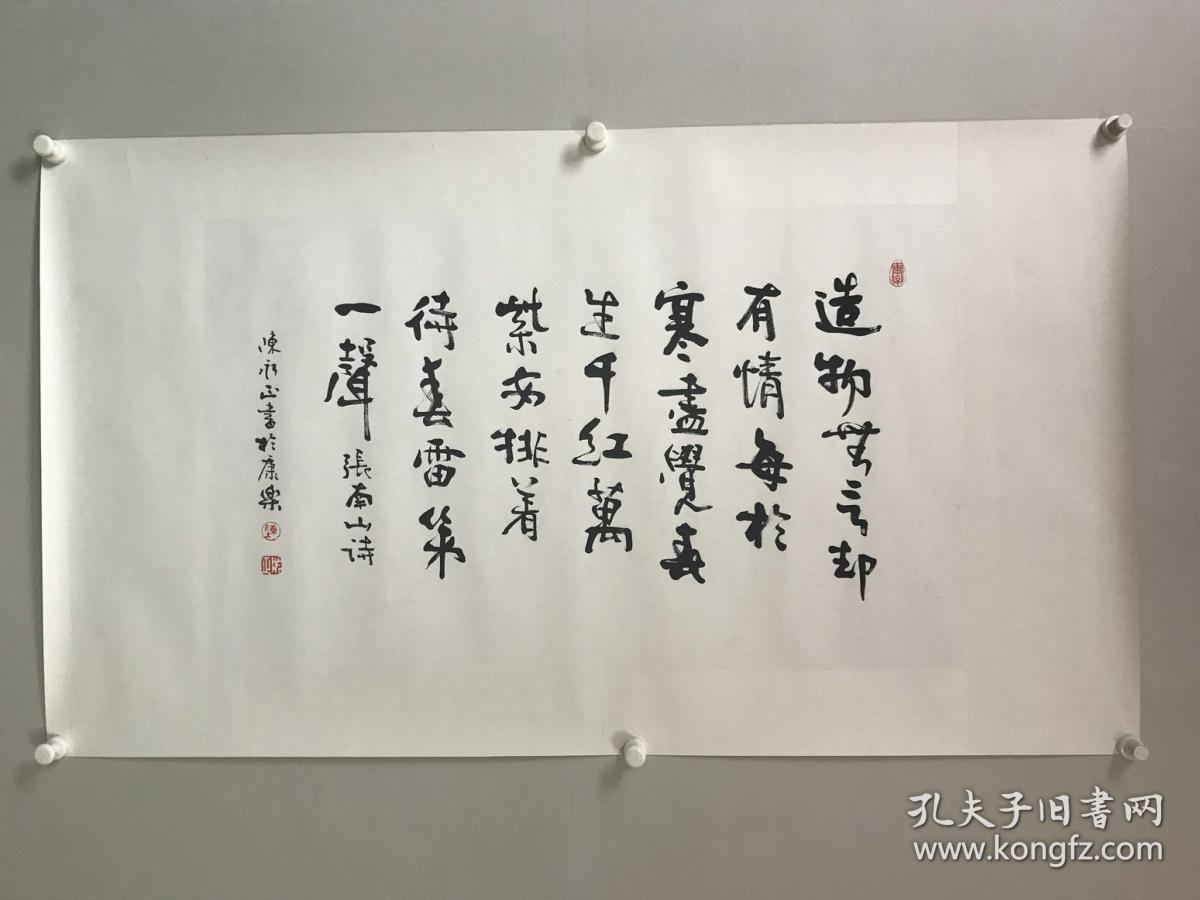 造物無言却
有情每於
寒盡覺春
生千紅萬
紫安排着
待春雷第
一聲 張南山诗
陳永正書於康樂
孔夫子旧书网
www.kongfz.com